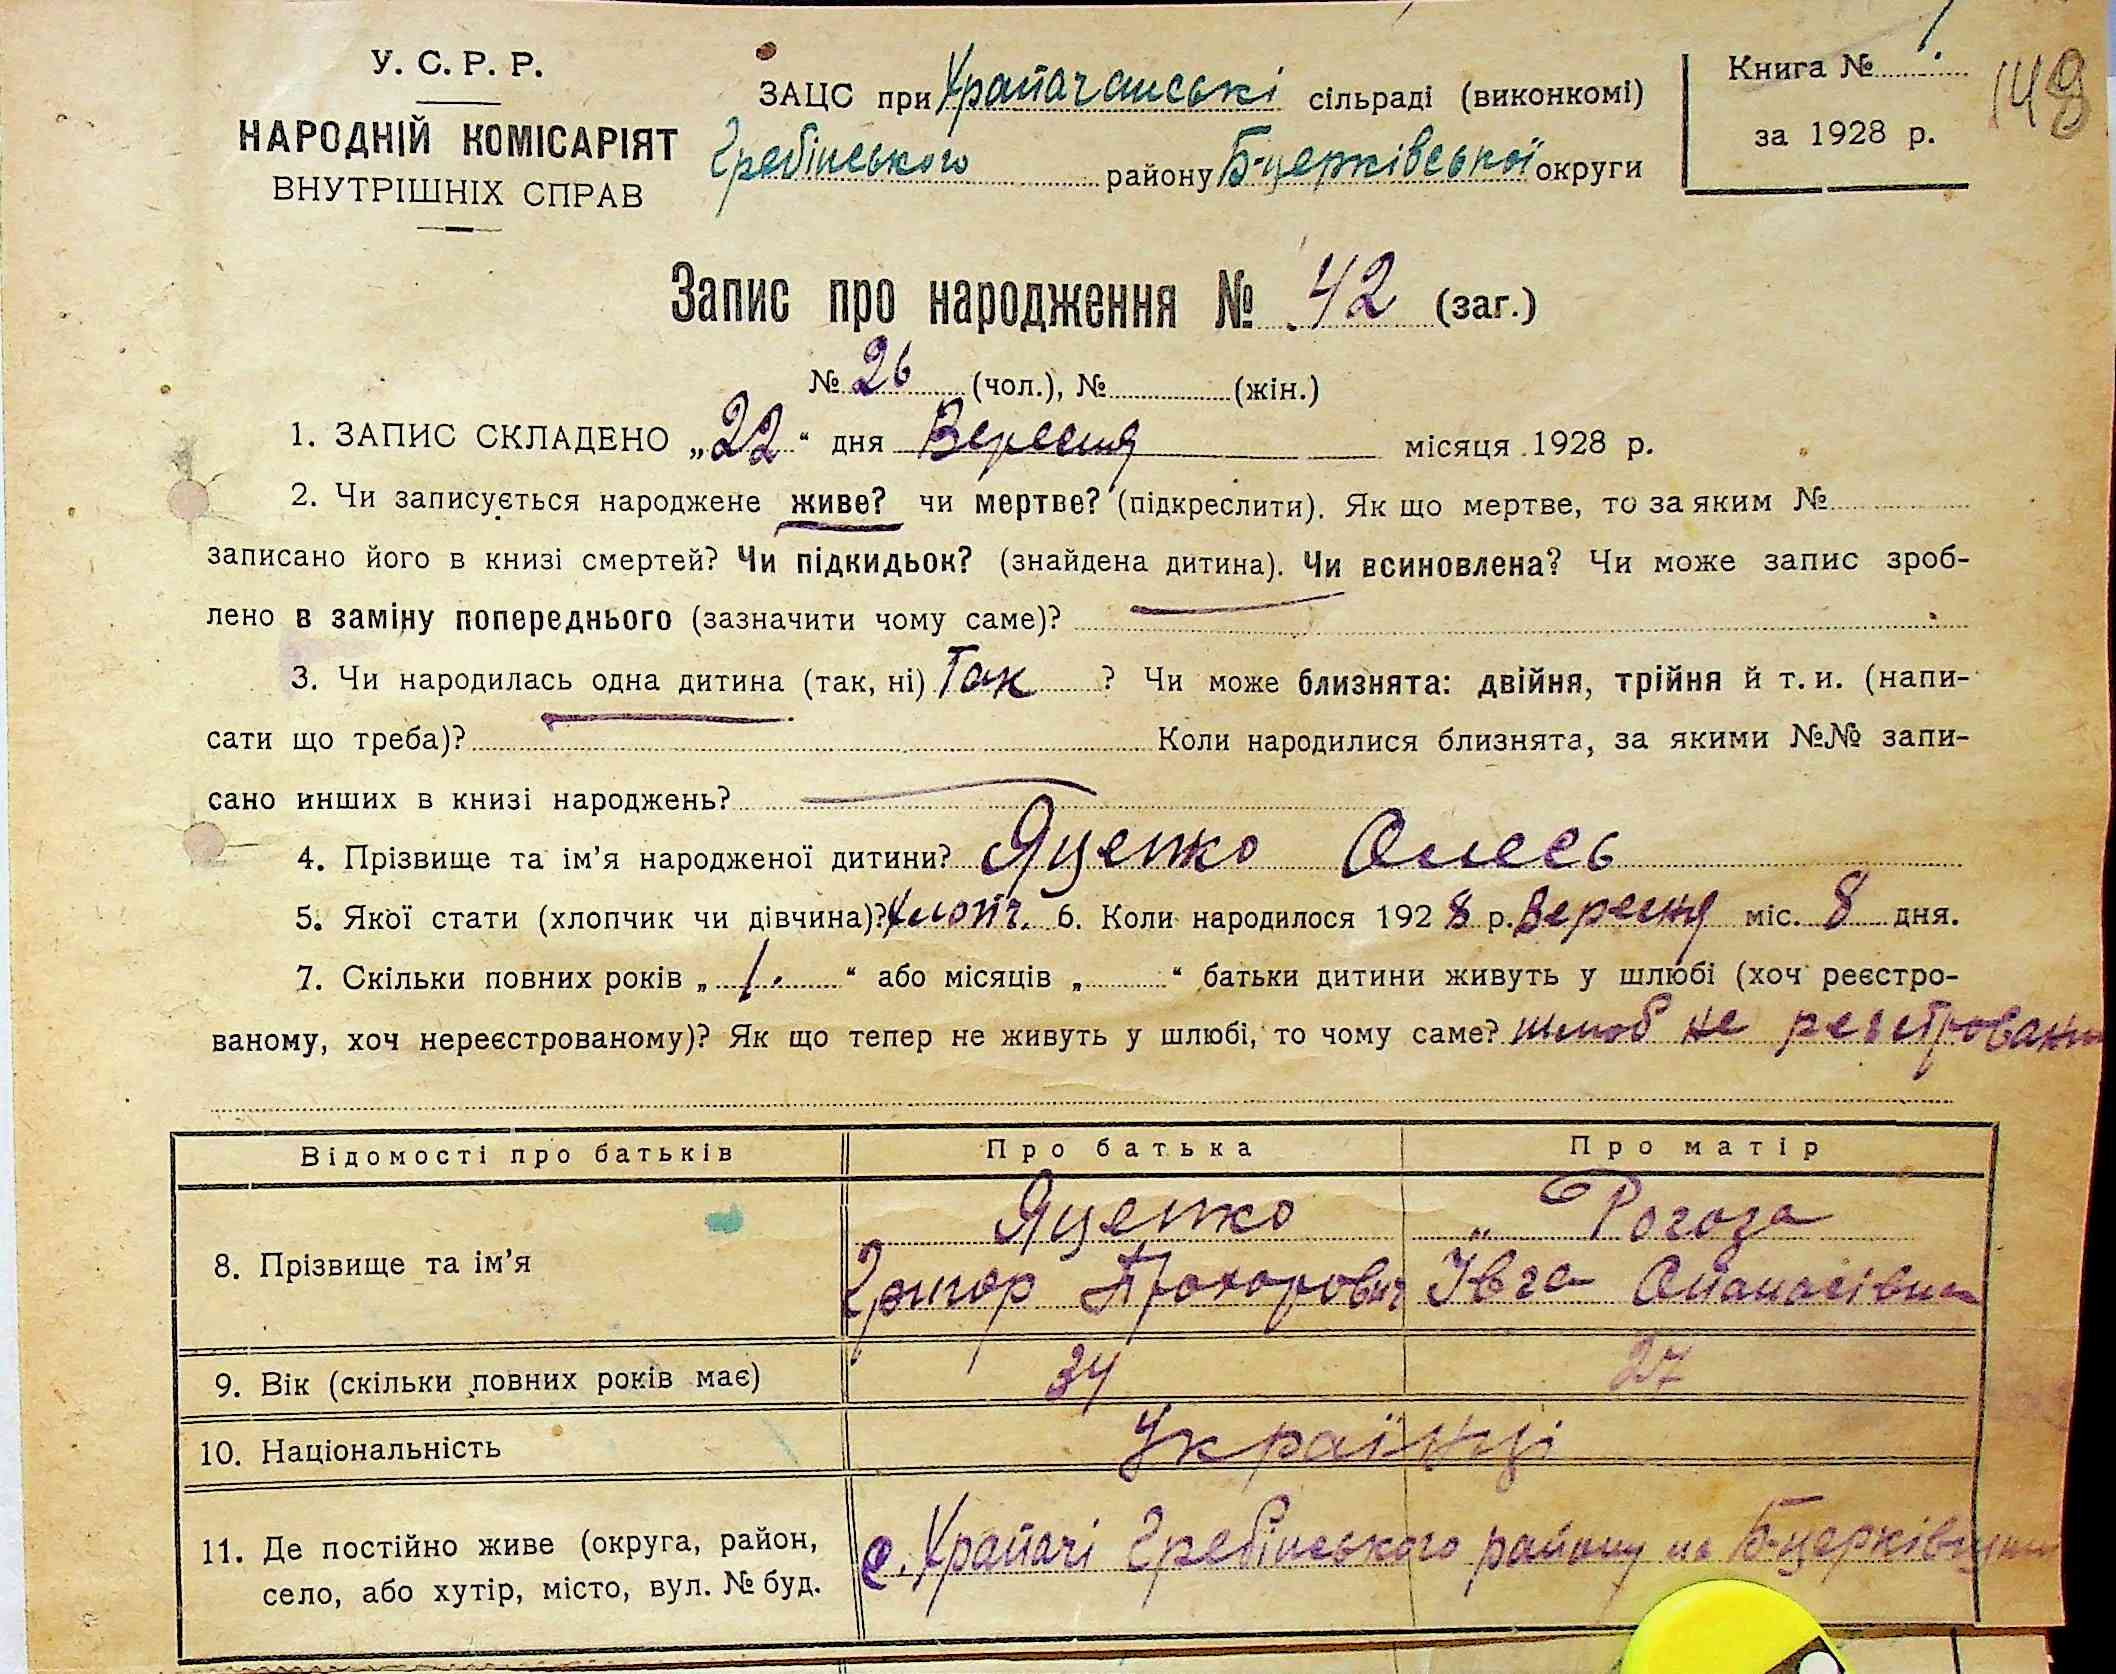 У. С. Р. Р.
НАРОДНІЙ КОМІСАРІЯТ
ВНУТРІШНІХ СПРАВ
ЗАЦС при Храпачанській сільраді (виконкомі)
Гребінського району Б-церківської округи
Книга № 1.
за 1928 р.
149
Запис про народження № 42 (заг.)
№ 26 (чол.), № (жін.)
1. ЗАПИС СКЛАДЕНО „22“ дня Вересня місяця 1928 р.
2. Чи записується народжене живе? чи мертве? (підкреслити). Як що мертве, то за яким №
записано його в книзі смертей? Чи підкидьок? (знайдена дитина). Чи всиновлена? Чи може запис зроб-
лено в заміну попереднього (зазначити чому саме)?
3. Чи народилась одна дитина (так, ні) Так ? Чи може близнята: двійня, трійня й т. и. (напи-
сати що треба)? Коли народилися близнята, за якими №№ запи-
сано инших в книзі народжень?
4. Прізвище та ім’я народженої дитини? Яценко Олесь
5. Якої стати (хлопчик чи дівчина)? Хлопч. 6. Коли народилося 1928 р. Вересня міс. 8 дня.
7. Скільки повних років „ 1. “ або місяців „ “ батьки дитини живуть у шлюбі (хоч реєстро-
ваному, хоч нереєстрованому)? Як що тепер не живуть у шлюбі, то чому саме? шлюб не реєстровании
Відомості про батьків Про батька Про матір
8. Прізвище та ім’я Яценко „ Рогоза
Григор Прохорович Ївга Опанасівна
9. Вік (скільки повних років має) 34 27
10. Національність Українці
11. Де постійно живе (округа, район,
село, або хутір, місто, вул. № буд.
с. Храпачі Гребінського району на Б-церківщині